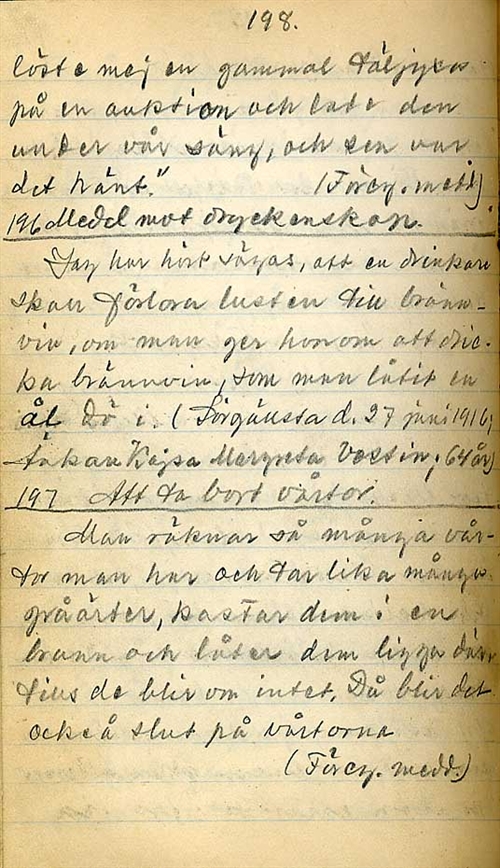 198.
löste mej en gammal täljyxa
på en auktion och lade den
under vår säng, och sen var
det hänt." (Föreg. medd)
196 Medel mot dryckenskap.
Jag har hört sägas, att en drinkare
skall förlora lusten till bränn-
vin, om man ger honom att dric-
ka brännvin, som man låtit en
ål dö i. (d. 27 juni 1916,
Kajsa Margreta Vestin, 64 år)
197 Att ta bort vårtor.
Man räknar så många vår-
tor man har och tar lika många
gråärter, kastar dem i en
brunn och låter dem ligga där,
tills de blir om intet. Då blir det
också slut på vårtorna
(Föreg. medd.)